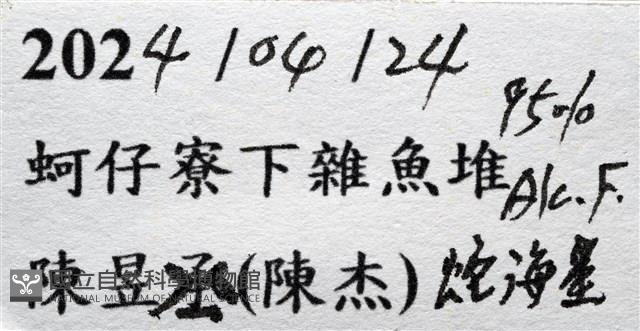 2024/04/24
95%
蚵仔寮下雜魚堆
Alc. F.
陳昱丞(陳杰) 蛇海星
國立自然科學博物館
NATIONAL MUSEUM OF NATURAL SCIENCE